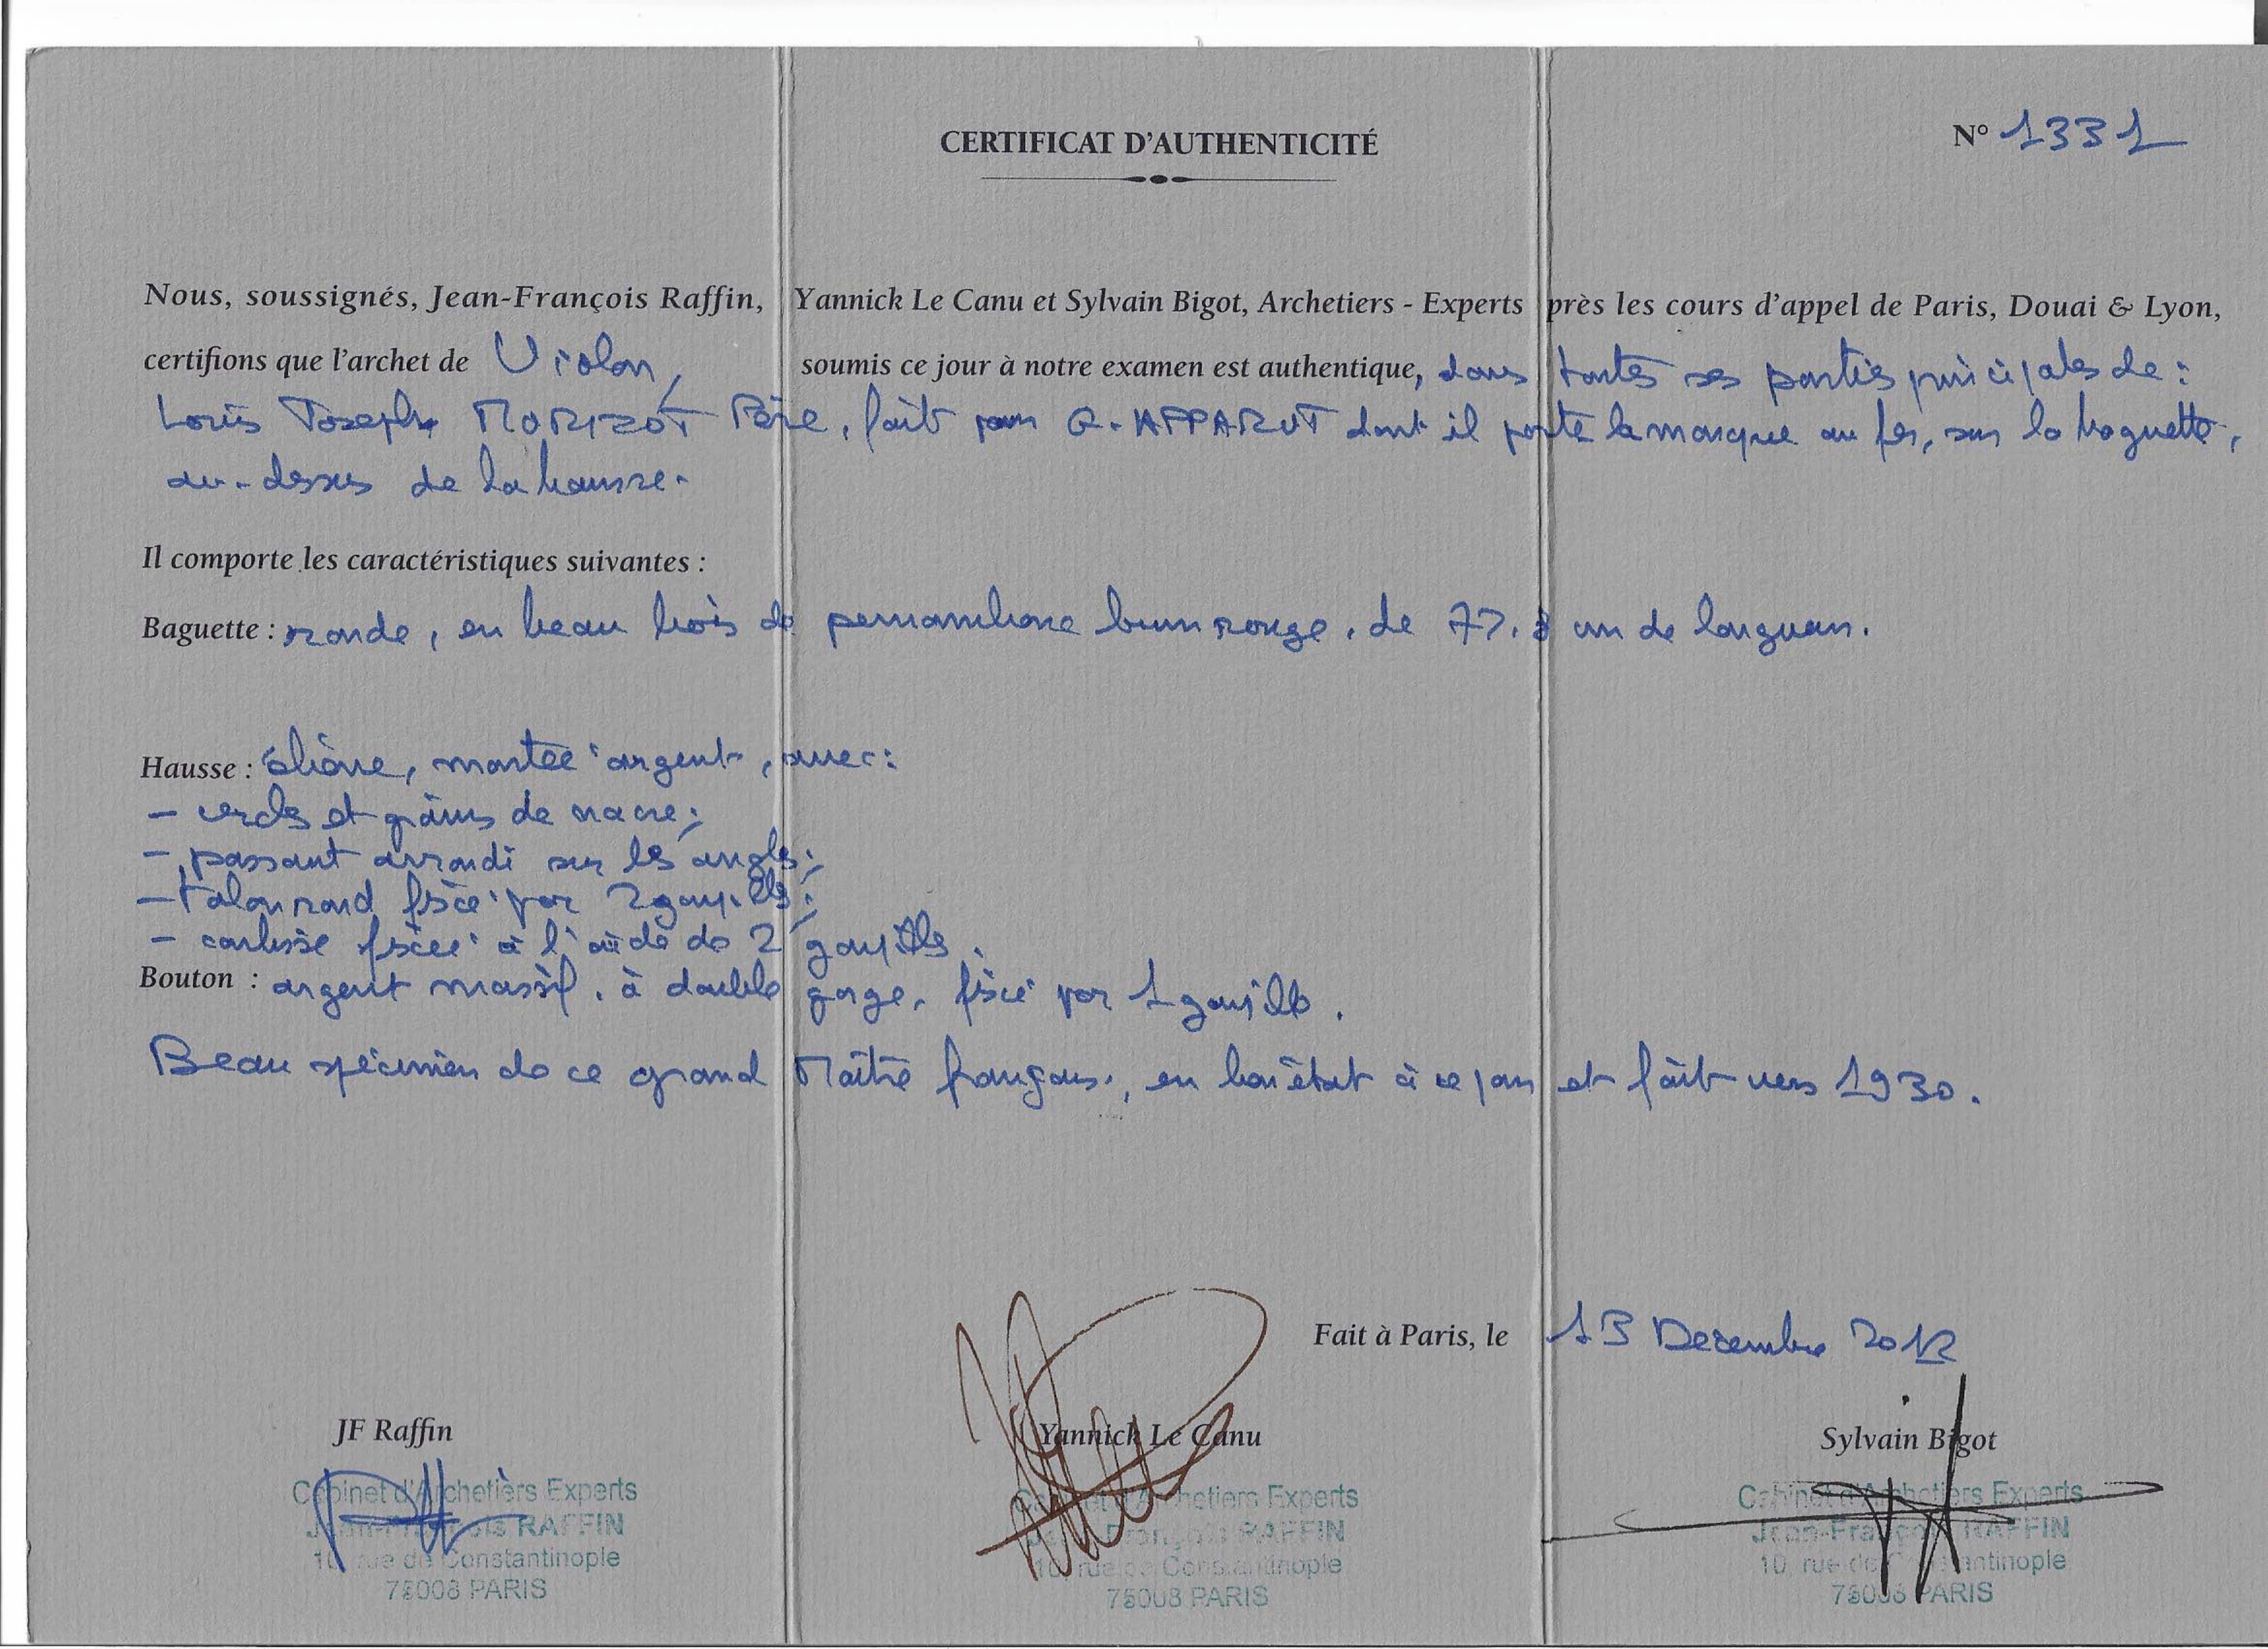 CERTIFICAT D'AUTHENTICITÉ
N° 1331
Nous, soussignés, Jean-François Raffin, Yannick Le Canu et Sylvain Bigot, Archetiers - Experts près les cours d'appel de Paris, Douai & Lyon,
certifions que l'archet de Violon, soumis ce jour à notre examen est authentique, dans toutes ses parties principales de :
Louis Joseph MORIZOT Père, fait pour G. APPARUT dont il porte la marque au fer, sur la baguette,
au-dessus de la hausse.
Il comporte les caractéristiques suivantes :
Baguette : ronde, en beau bois de pernambouc brun rouge, de cm de longueur.
Hausse : ébène, montée argent, avec :
- cercles et grains de nacre ;
- passant arrondi sur les angles ;
- talon rond fixé par 2 goupilles ;
- coulisse fixée à l'aide de 2 goupilles.
Bouton : argent massif, à double gorge, fixé par 1 goupille.
Beau spécimen de ce grand Maître français, en bon état à ce jour et fait vers 1930.
Fait à Paris, le 13 Decembre 2012
JF Raffin
Yannick Le Canu
Sylvain Bigot
Cabinet d'Archetiers Experts
Jean-François RAFFIN
10, rue de Constantinople
75008 PARIS
Cabinet d'Archetiers Experts
Jean-François RAFFIN
10, rue de Constantinople
75008 PARIS
Cabinet d'Archetiers Experts
Jean-François RAFFIN
10, rue de Constantinople
75008 PARIS